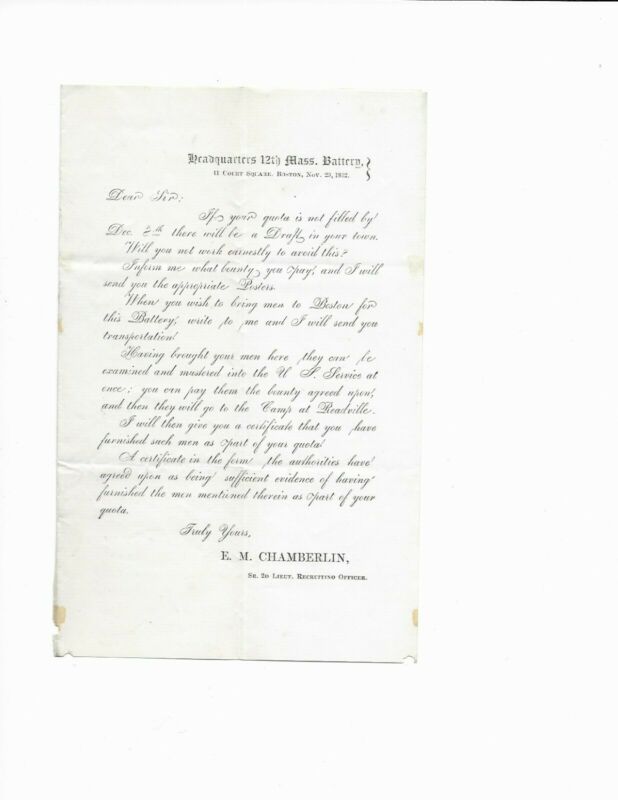 Headquarters 12th Mass. Battery,
11 Court Square, Boston, Nov. 29, 1862.
Dear Sir;
If your quota is not filled by
Dec. 8th there will be a Draft in your town.
Will you not work earnestly to avoid this?
Inform me what bounty you pay, and I will
send you the appropriate Posters.
When you wish to bring men to Boston for
this Battery, write to me and I will send you
transportation.
Having brought your men here they can be
examined and mustered into the U. S. Service at
once; you can pay them the bounty agreed upon,
and then they will go to the Camp at Readville.
I will then give you a certificate that you have
furnished such men as part of your quota.
A certificate in the form the authorities have
agreed upon as being sufficient evidence of having
furnished the men mentioned therein as part of your
quota.
Truly Yours,
E. M. CHAMBERLIN,
Sr. 2d Lieut. Recruiting Officer.